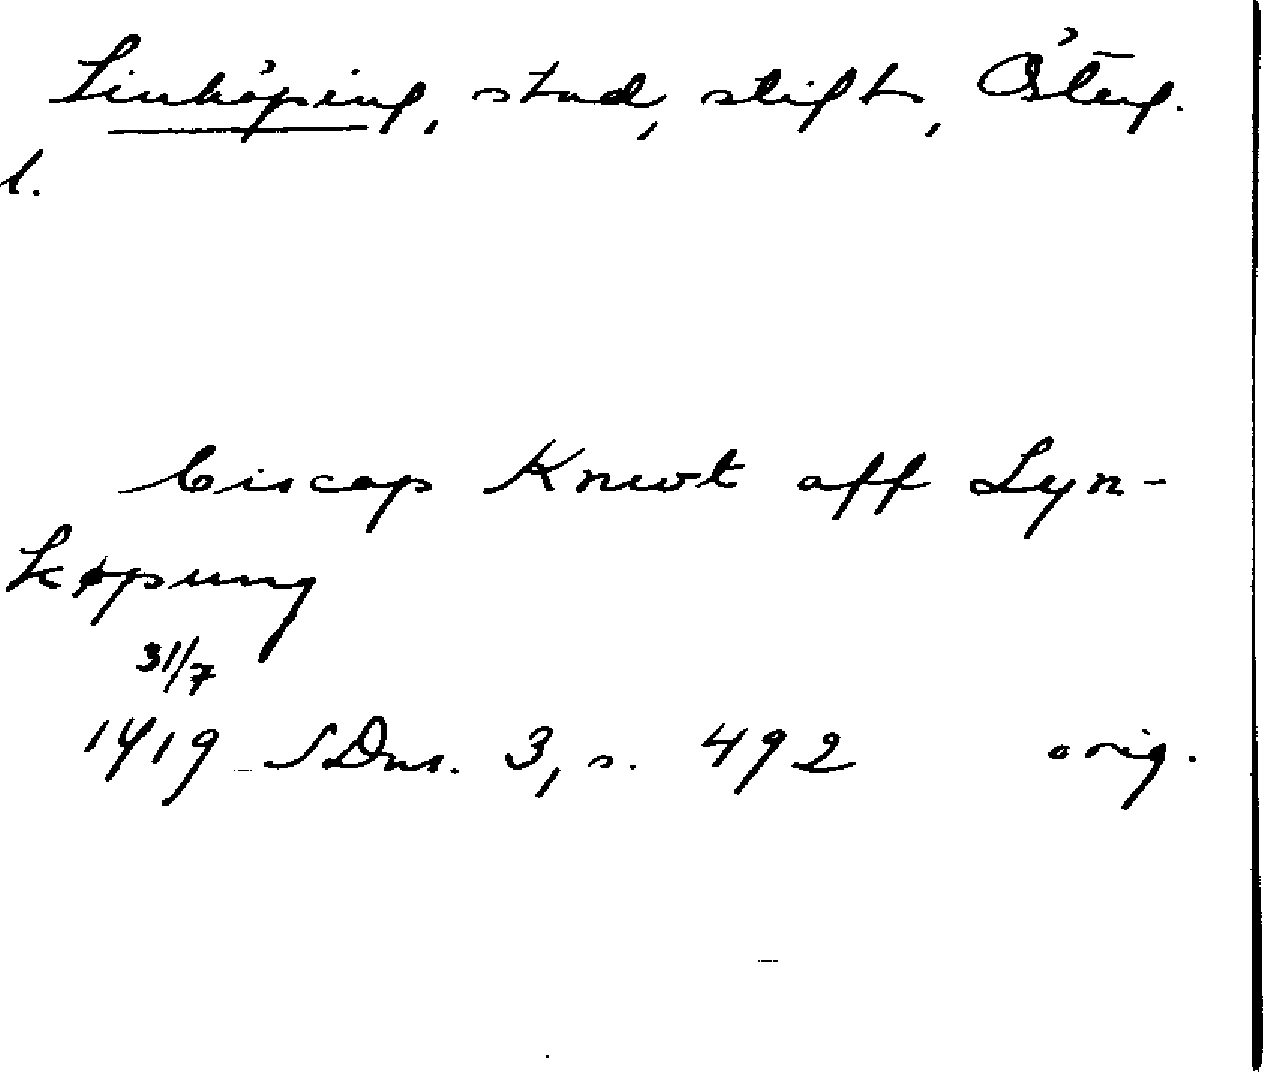 Linköping, stad, stift, Österg.
l.
biscap Knwt aff Lyn-
køpung
31/7
1419 SDns. 3, s. 492 orig.